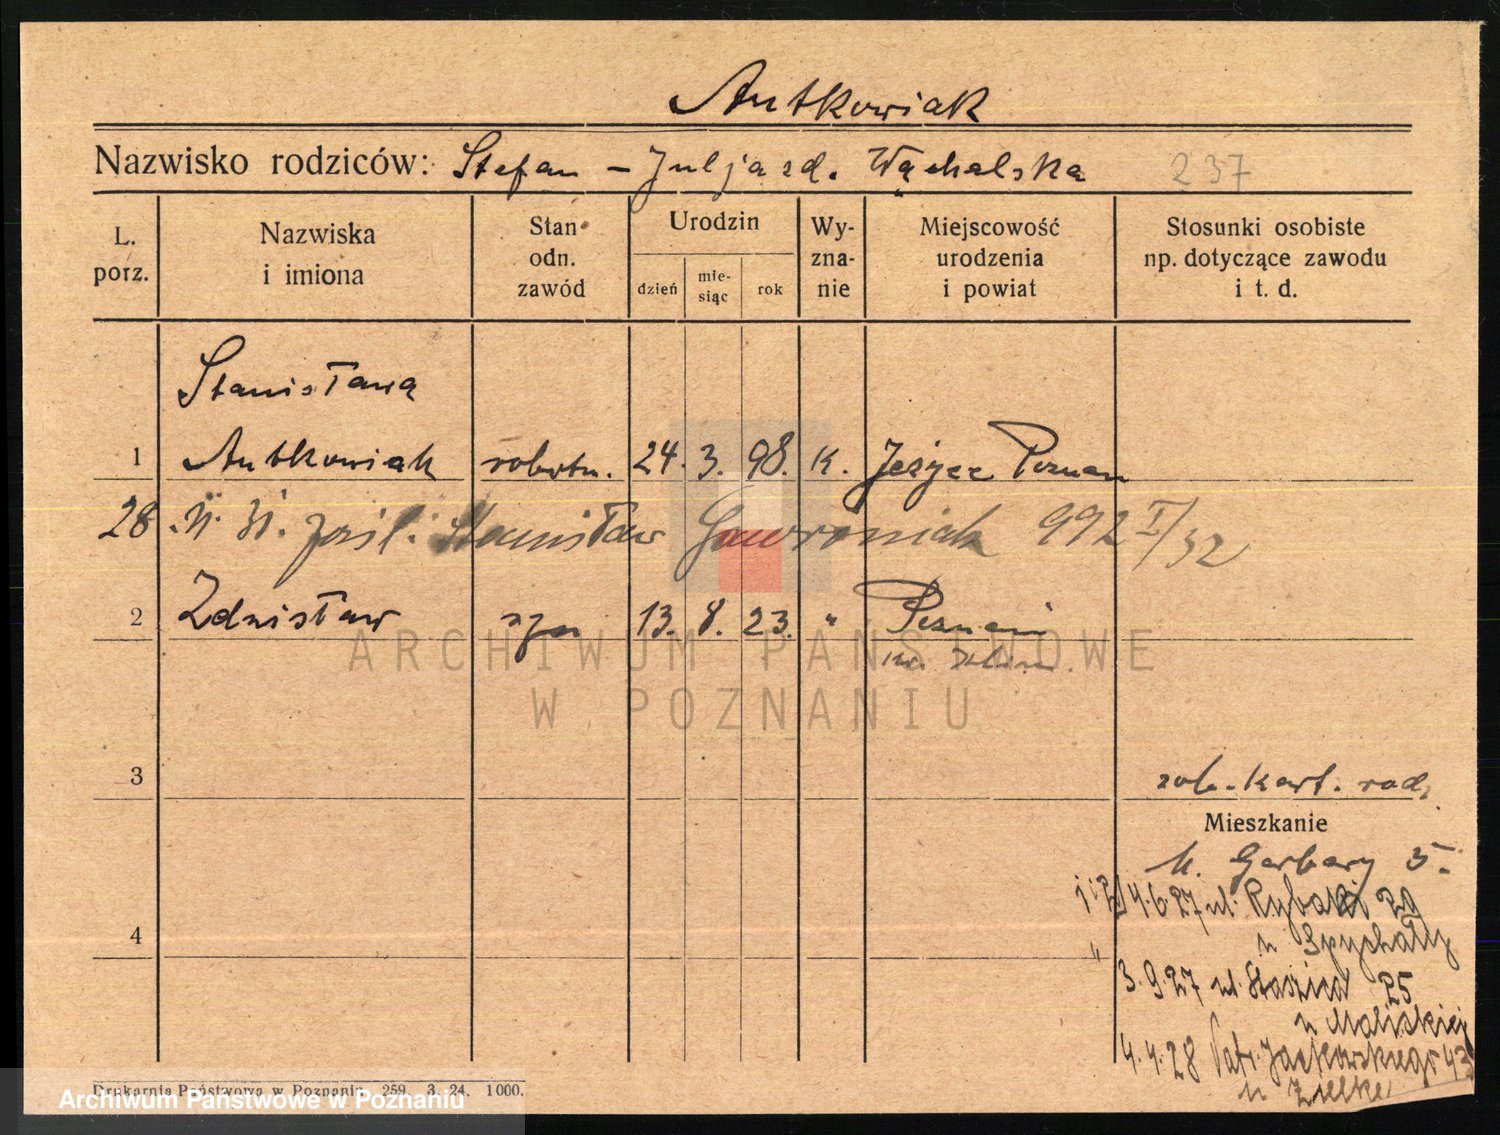 Antkowiak
Nazwisko rodziców: Stefan – Julja zd. Wąchalska 237
L. porz.
Nazwiska i imiona
Stan odn. zawód
Urodzin
dzień
mie-siąc
rok
Wy-zna-nie
Miejscowość urodzenia i powiat
Stosunki osobiste np. dotyczące zawodu i t. d.
Stanisława
1 Antkowiak robotn. 24. 3. 98. k. Jeżyce Poznań
28. Stanisław Gawroniak 992 I/32
2 Zdzisław syn 13. 8. 23. " Poznań
3
zob. kart. rodz.
Mieszkanie
Garbary 5.
4.6.27 ul. Rybaki 29
u Spychały
4
3.9.27 ul. Staszica 25
u Maliskiej
4.4.28 Patr. Jackowskiego 43
u Zielke
ARCHIWUM PAŃSTWOWE
W POZNANIU
Drukarnia Państwowa w Poznaniu 259. 3. 24. 1000.
Archiwum Państwowe w Poznaniu